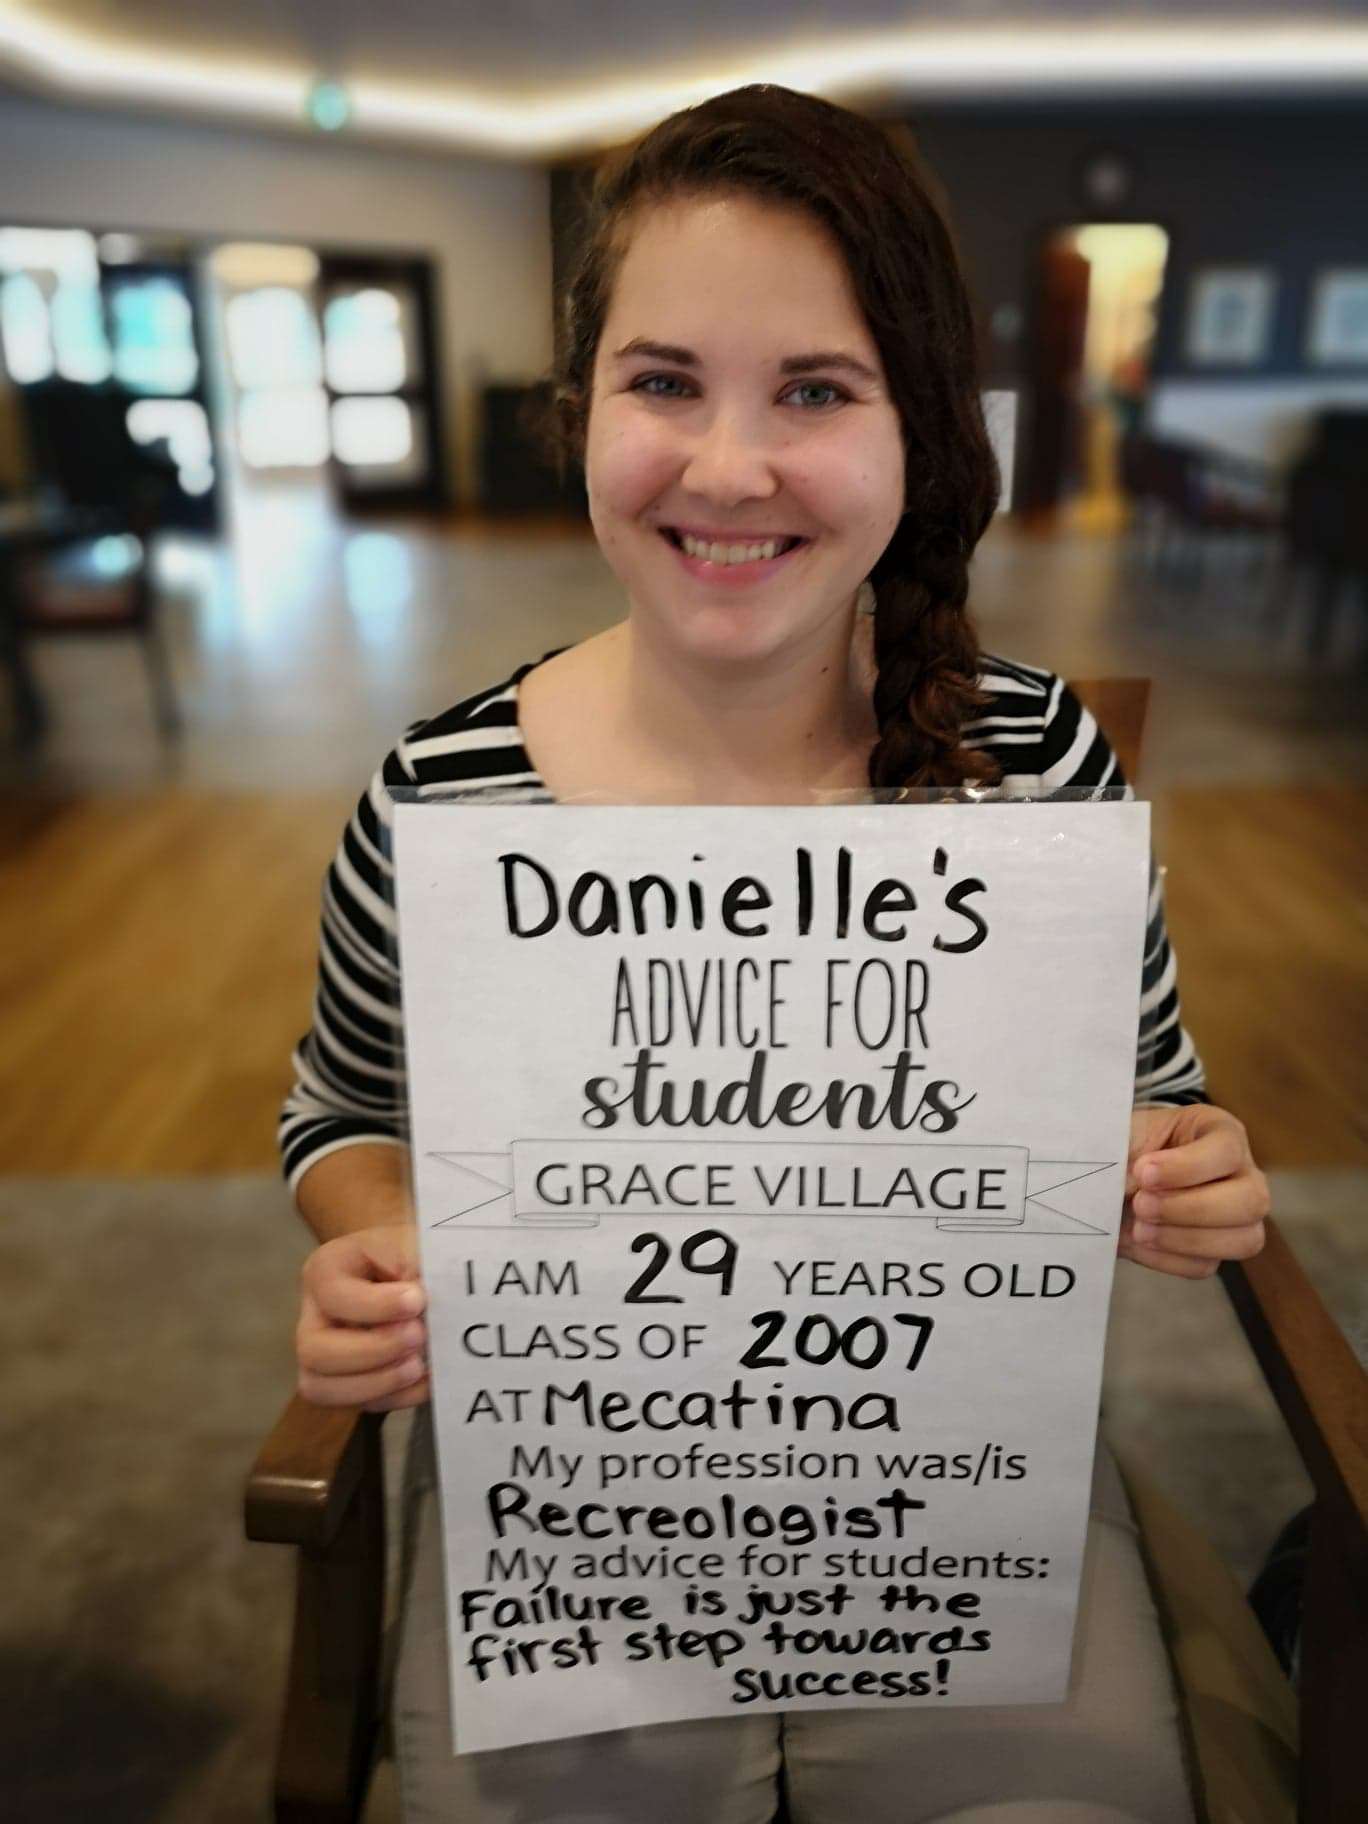 Danielle's
ADVICE FOR
students
GRACE VILLAGE
I AM 29 YEARS OLD
CLASS OF 2007
AT Mecatina
My profession was/is
Recreologist
My advice for students:
Failure is just the
first step towards
success!